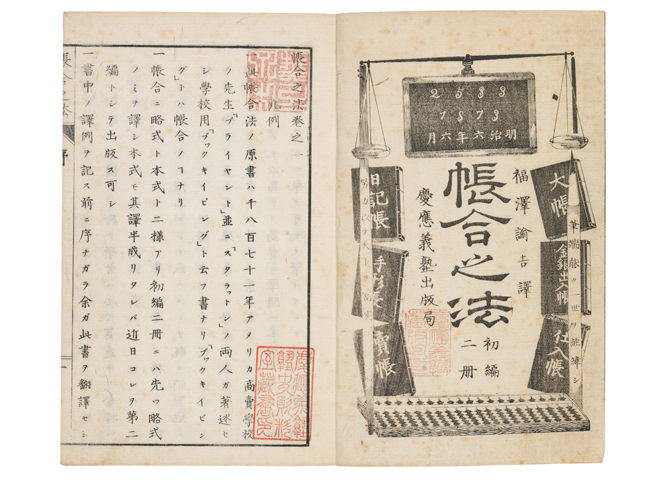 2533
1873
明治六年六月
福澤諭吉譯
帳合之法
初編
二冊
慶應義塾出版局
大帳
金銀出入帳
仕入帳
日記帳
賣帳
帳合之法卷之一
凡例
一此帳合法ノ原書ハ千八百七十一年アメリカ商賣學校
ノ先生「ブライヤント」並ニ「スタラットン」ノ両人ガ著述セ
シ學校用「ブックキイピング」ト云フ書ナリ「ブックキイピン
グ」トハ帳合ノコナリ
一帳合ニ略式ト本式ト二様アリ初編二冊ニハ先ツ略式
ノミヲ譯シ本式モ其譯半成リタレバ近日コレヲ第二
編トシテ出版ス可シ
一書中ノ譯例ヲ記ス前ニ序ナガラ余ガ此書ヲ翻譯セシ
帳合之法
序